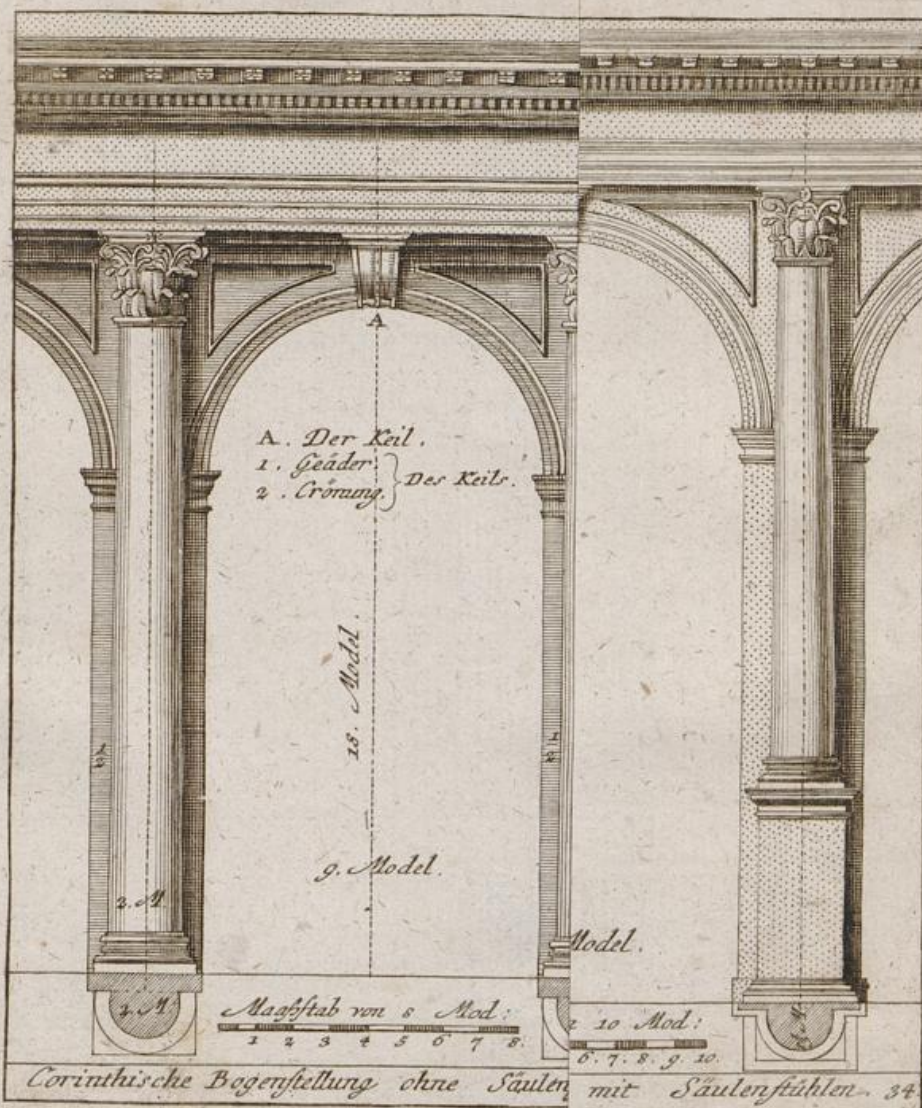 A
A. Der Keil.
1. Geäder.
2. Crönung.
Des Keils.
18. Model.
1/2
1/2
9. Model.
2. M.
Model.
2. M.
Maaßstab von 8 Mod:
1 2 3 4 5 6 7 8.
10 Mod:
6. 7. 8. 9. 10.
Corinthische Bogenstellung ohne Säulen
mit Säulenstühlen. 34